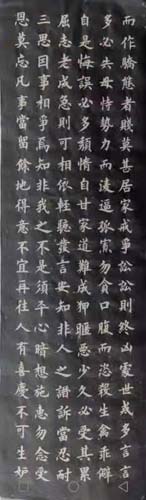 而作驕態者賤莫甚居家戒爭訟訟則終凶處世戒多言言
多必失毋恃勢力而凌逼孤寡勿貪口腹而恣殺生禽乖僻
自是悔誤必多頹惰自甘家道難成狎暱惡少久必受其累
屈志老成急則可相依輕聽發言安知非人之譖訴當忍耐
三思因事相爭焉知非我之不是須平心暗想施惠勿念受
恩莫忘凡事當留餘地得意不宜再往人有喜慶不可生妒